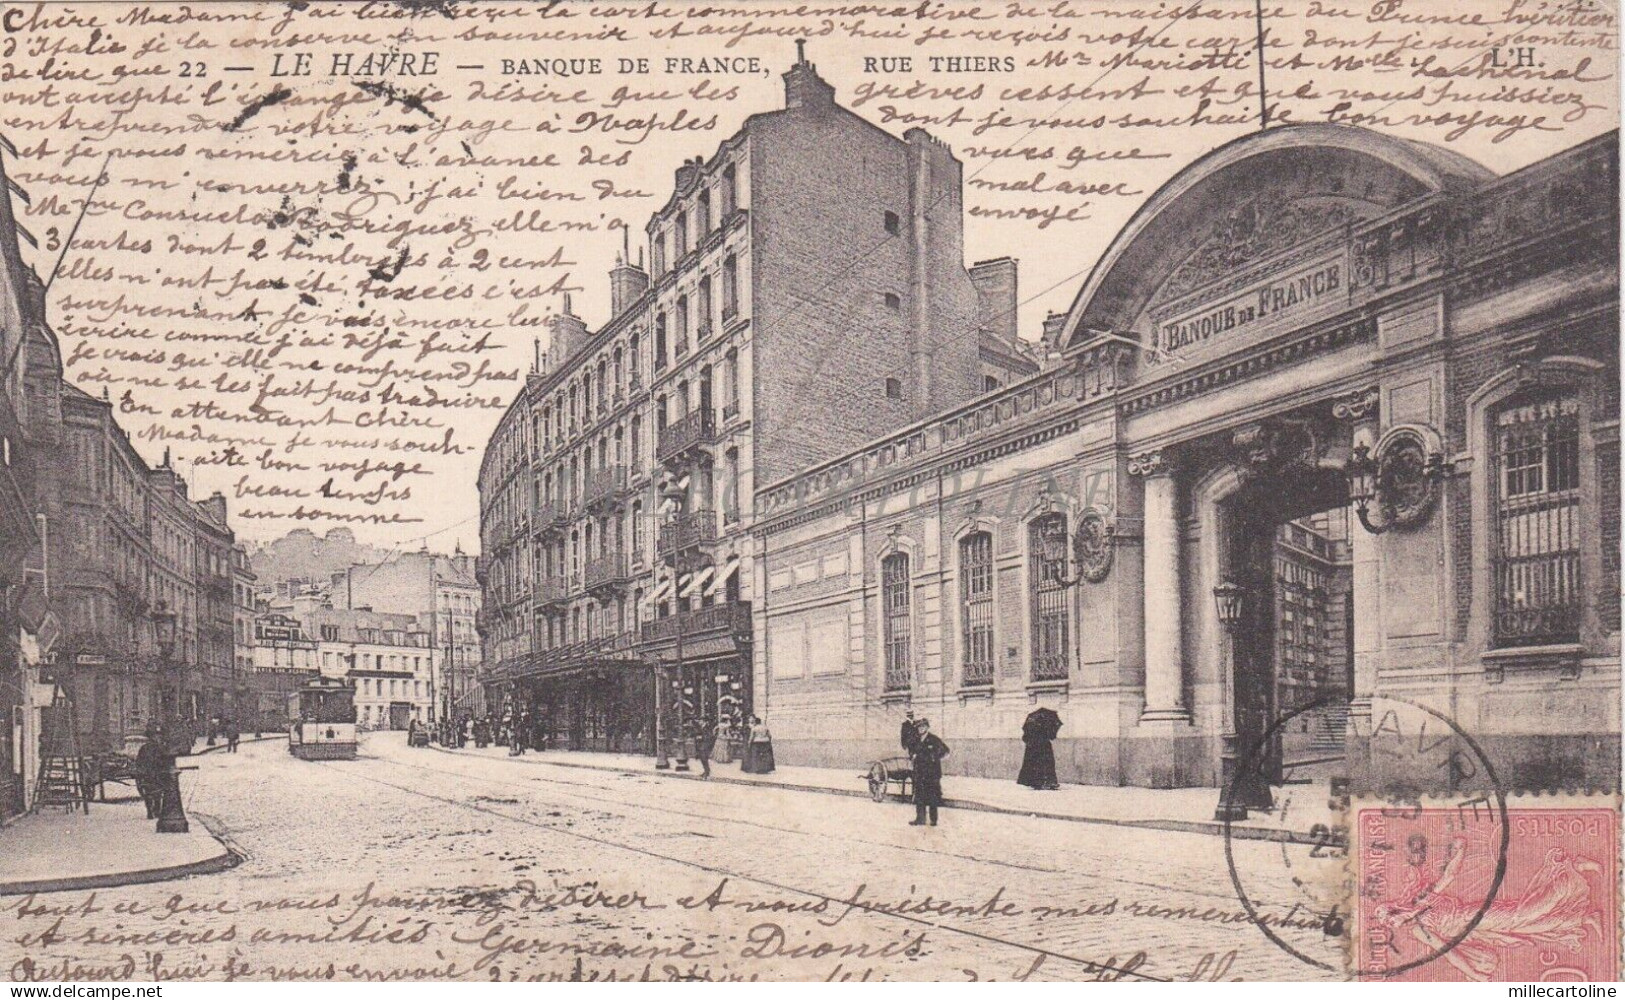 Chère Madame j'ai bien reçu la carte commemorative de la naissance du Prince héritier
d'Italie je la conserve en souvenir et aujourd'hui je reçois votre carte dont je suis contente
de lire que 22 — LE HAVRE — BANQUE DE FRANCE, RUE THIERS Mme Mariotti et Melle Lachenal L'H.
ont accepté l'échange je désire que les grèves cessent et que vous puissiez
entreprendre votre voyage à Naples dont je vous souhaite bon voyage
et je vous remercie à l'avance des vues que
vous m'enverrez j'ai bien du mal avec
Me Consuelo Rodriguez elle m'a envoyé
3 cartes dont 2 timbrées à 2 cent
elles n'ont pas été taxées c'est
surprenant je vais encore lui
écrire comme j'ai déjà fait
je crois qu'elle ne comprend pas
où ne se les fait pas traduire
En attendant Chère
Madame je vous souh-
aite bon voyage
beau temps
en somme
BANQUE DE FRANCE
DELCAMPE
HAVRE
25
POSTES
tout ce que vous pouvez désirer et vous présente mes remerciements
et sincères amitiés Germaine Dionis
Aujourd'hui je vous envoie 3 cartes et désire de la
delcampe.net
millecartoline